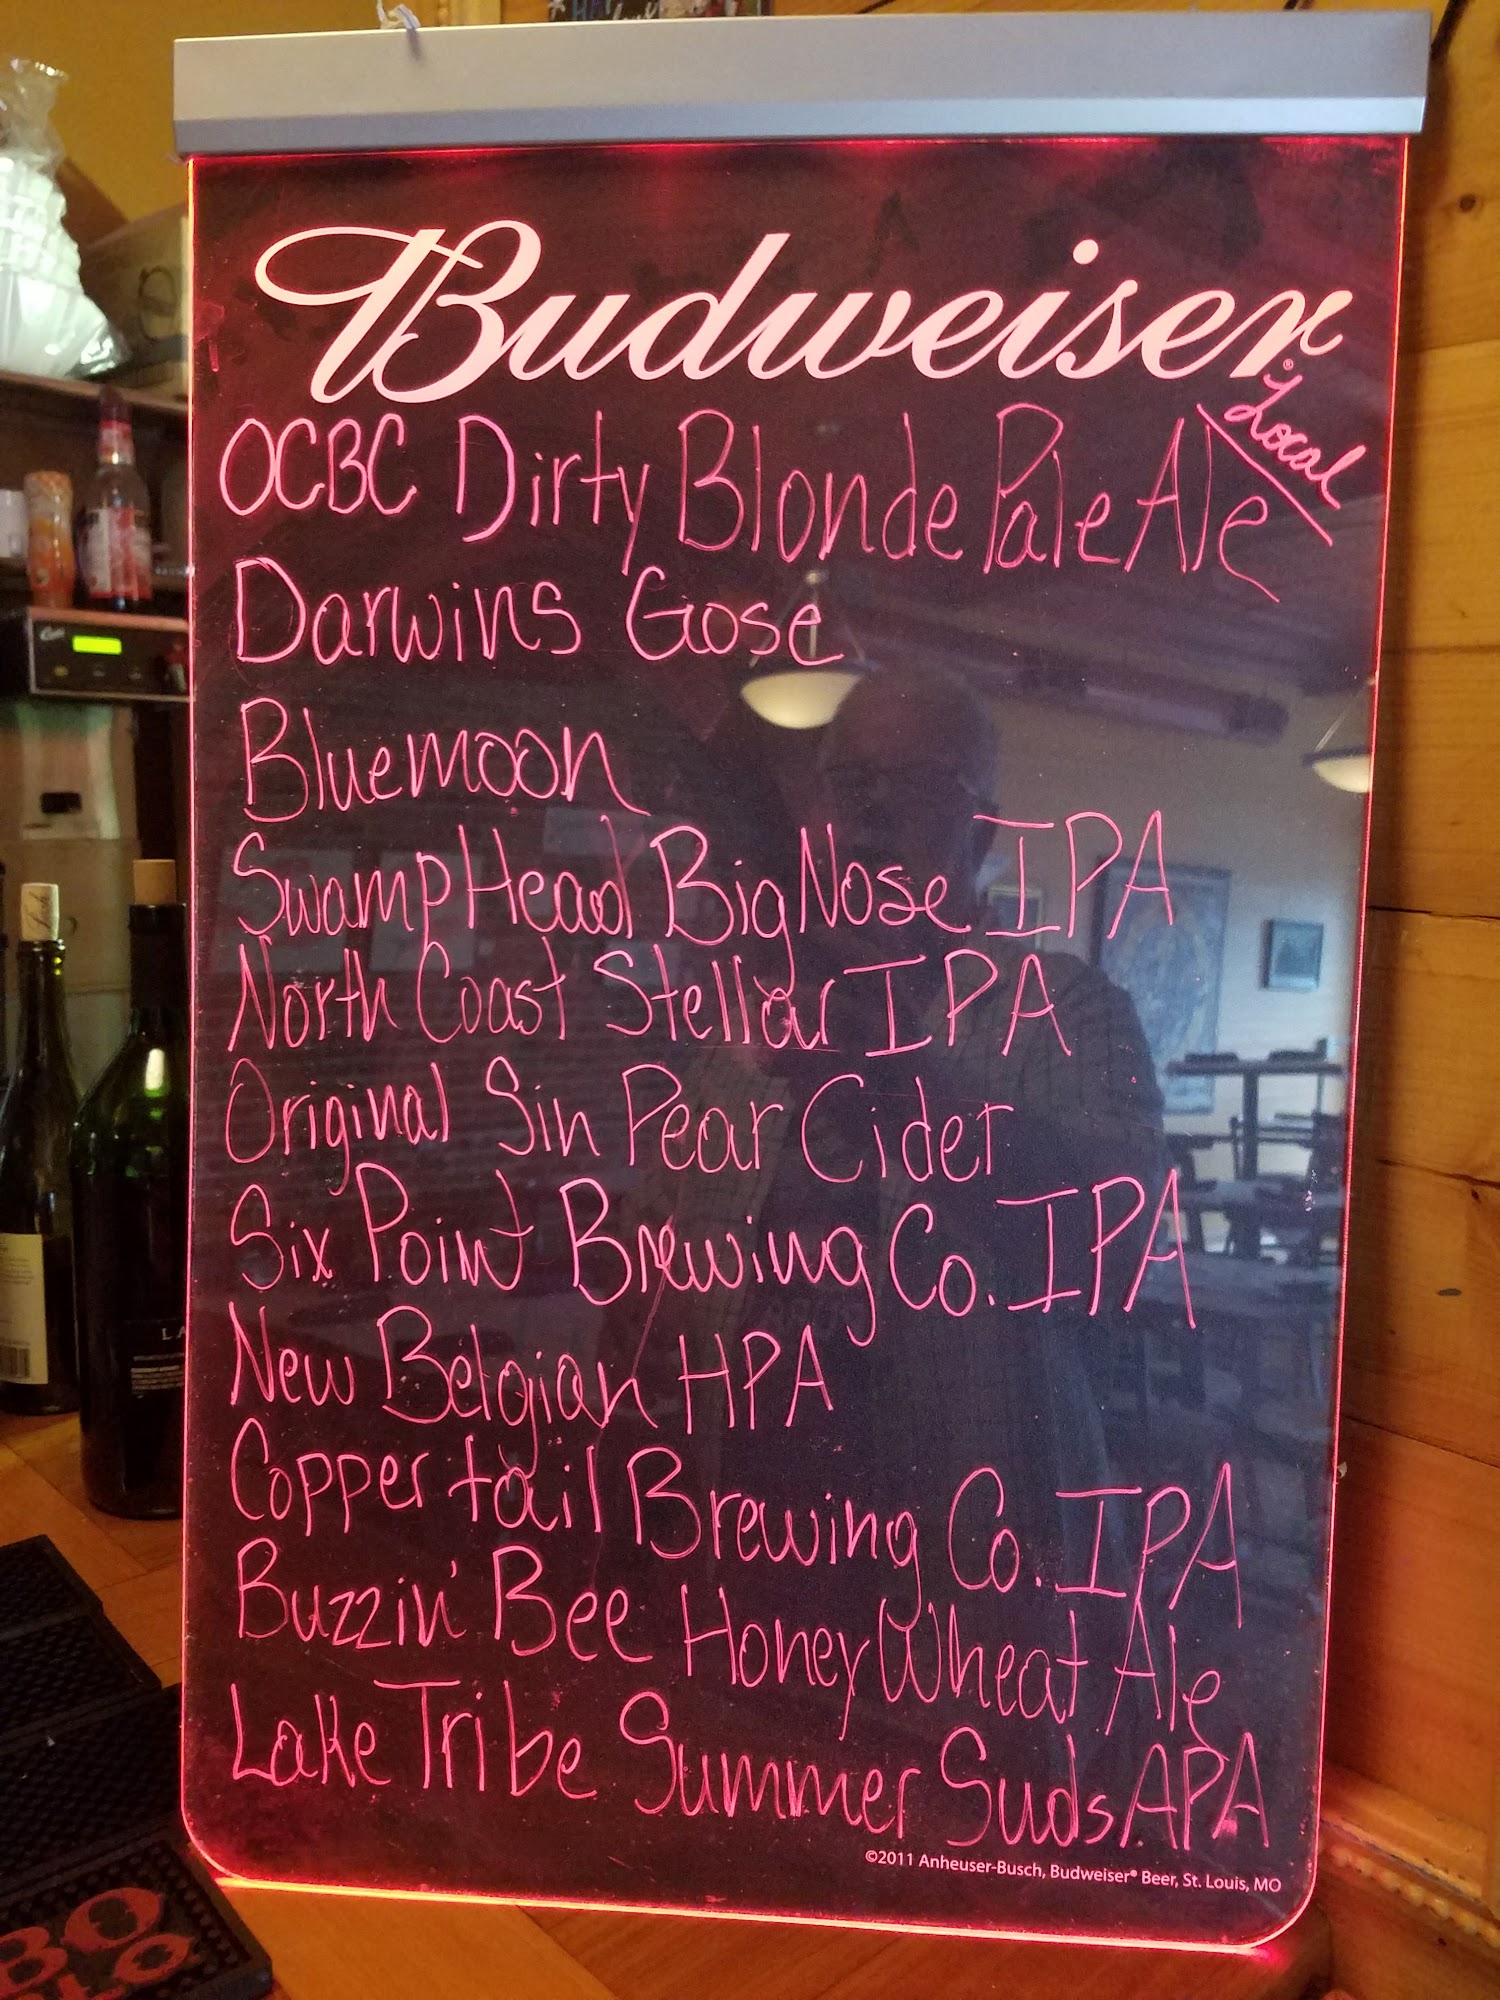 Budweiser
Local
OCBC Dirty Blonde Pale Ale
Darwins Gose
Bluemoon
Swamp Head Big Nose IPA
North Coast Stellar IPA
Original Sin Pear Cider
Six Point Brewing Co. IPA
New Belgian HPA
Copper tail Brewing Co. IPA
Buzzin' Bee Honey Wheat Ale
Lake Tribe Summer Suds APA
©2011 Anheuser-Busch, Budweiser® Beer, St. Louis, MO